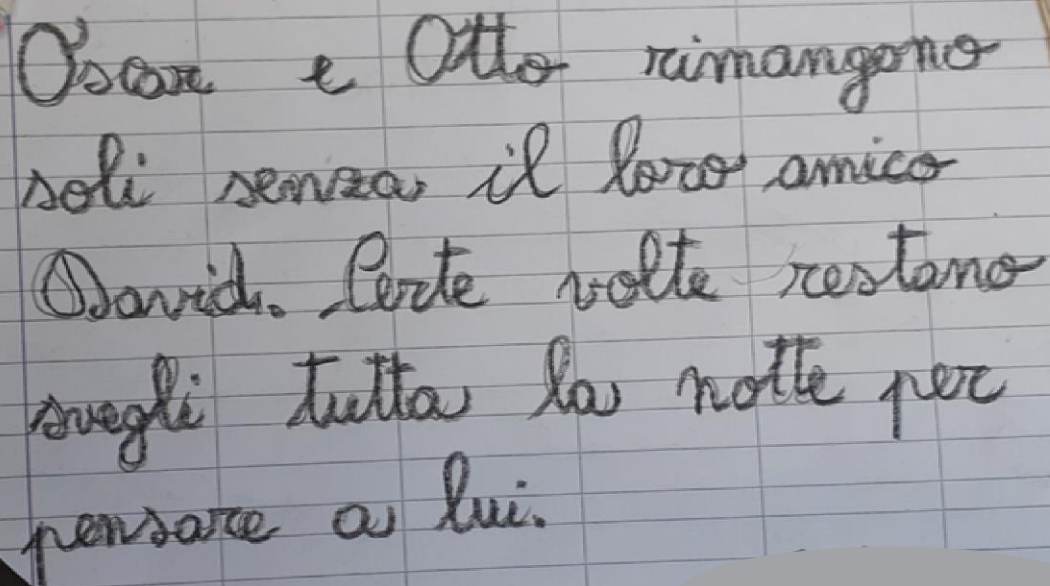 Oscar e Otto rimangono
soli senza il loro amico
David. Certe volte restano
svegli tutta la notte per
pensare a lui.